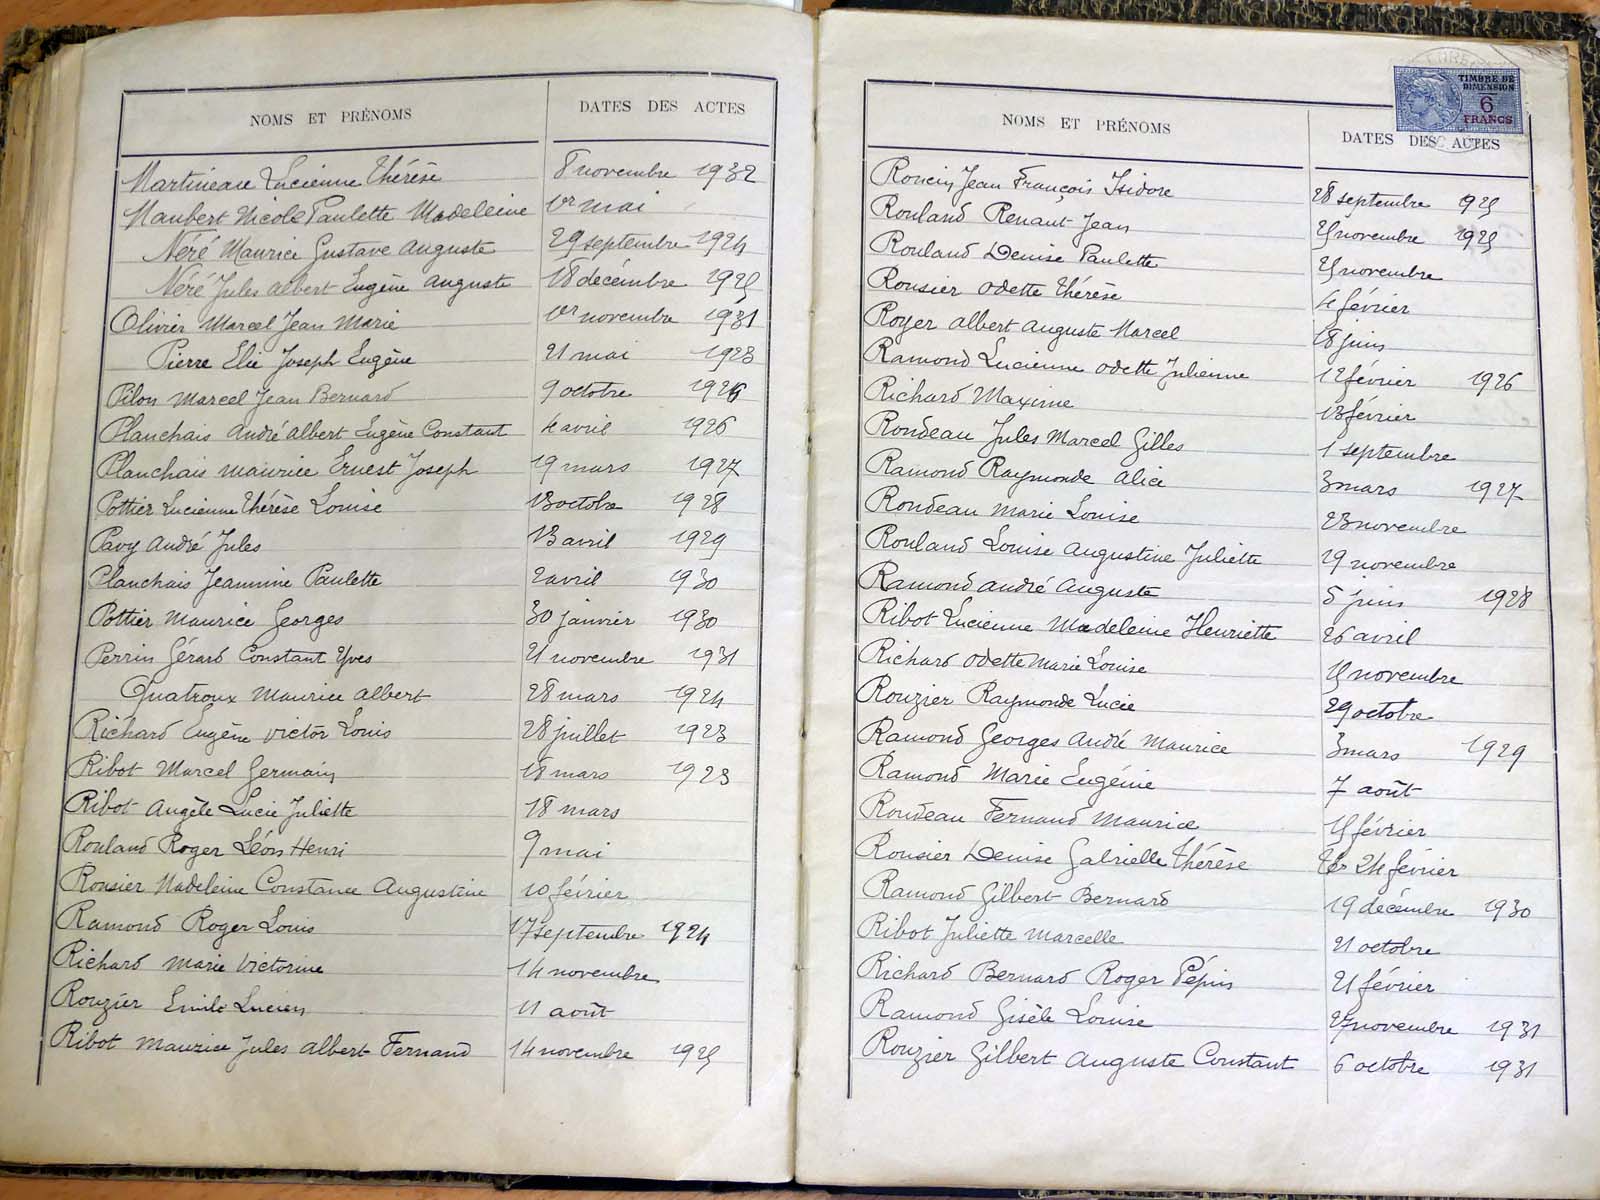 NOMS ET PRÉNOMS DATES DES ACTES
Martineau Lucienne Thérèse 8 novembre 1932
Maubert Nicole Paulette Madeleine 1er mai
Néré Maurice Gustave Auguste 29 septembre 1924
Néré Jules Albert Eugène Auguste 18 décembre 1925
Olivier Marcel Jean Marie 1er novembre 1931
Pierre Elie Joseph Eugène 21 mai 1923
Pilon Marcel Jean Bernard 9 octobre 1926
Planchais André Albert Eugène Constant 4 avril 1926
Planchais Maurice Ernest Joseph 19 mars 1927
Pottier Lucienne Thérèse Louise 13 octobre 1928
Pavy André Jules 13 avril 1929
Planchais Jeannine Paulette 2 avril 1930
Pottier Maurice Georges 30 janvier 1930
Perrin Gérard Constant Yves 21 novembre 1931
Quatroux Maurice Albert 28 mars 1924
Richard Eugène Victor Louis 28 juillet 1923
Ribot Marcel Germain 18 mars 1923
Ribot Angèle Lucie Juliette 18 mars
Rouland Roger Léon Henri 9 mai
Rousier Madeleine Constance Augustine 10 février
Ramond Roger Louis 17 septembre 1924
Richard Marie Victorine 14 novembre
Rouzier Emile Lucien 11 août
Ribot Maurice Jules Albert Fernand 14 novembre 1925
TIMBRE DE
DIMENSION
6
FRANCS
NOMS ET PRÉNOMS DATES DES ACTES
Roncin Jean François Isidore 28 septembre 1925
Rouland Renaut Jean 25 novembre 1925
Rouland Denise Paulette 25 novembre
Rousier Odette Thérèse 4 février
Royer Albert Auguste Marcel 18 juin
Ramond Lucienne Odette Julienne 12 février 1926
Richard Maxime 13 février
Rondeau Jules Marcel Gilles 1 septembre
Ramond Raymonde Alice 3 mars 1927
Rondeau Marie Louise 23 novembre
Rouland Louise Augustine Juliette 29 novembre
Ramond André Auguste 5 juin 1928
Ribot Lucienne Madeleine Henriette 26 avril
Richard Odette Marie Louise 15 novembre
Rouzier Raymonde Lucie 29 octobre
Ramond Georges André Maurice 3 mars 1929
Ramond Marie Eugénie 7 août
Rondeau Fernand Maurice 15 février
Rousier Denise Gabrielle Thérèse 24 février
Ramond Gilbert Bernard 19 décembre 1930
Ribot Juliette Marcelle 21 octobre
Richard Bernard Roger Pépin 21 février
Ramond Gisèle Louise 27 novembre 1931
Rouzier Gilbert Auguste Constant 6 octobre 1931